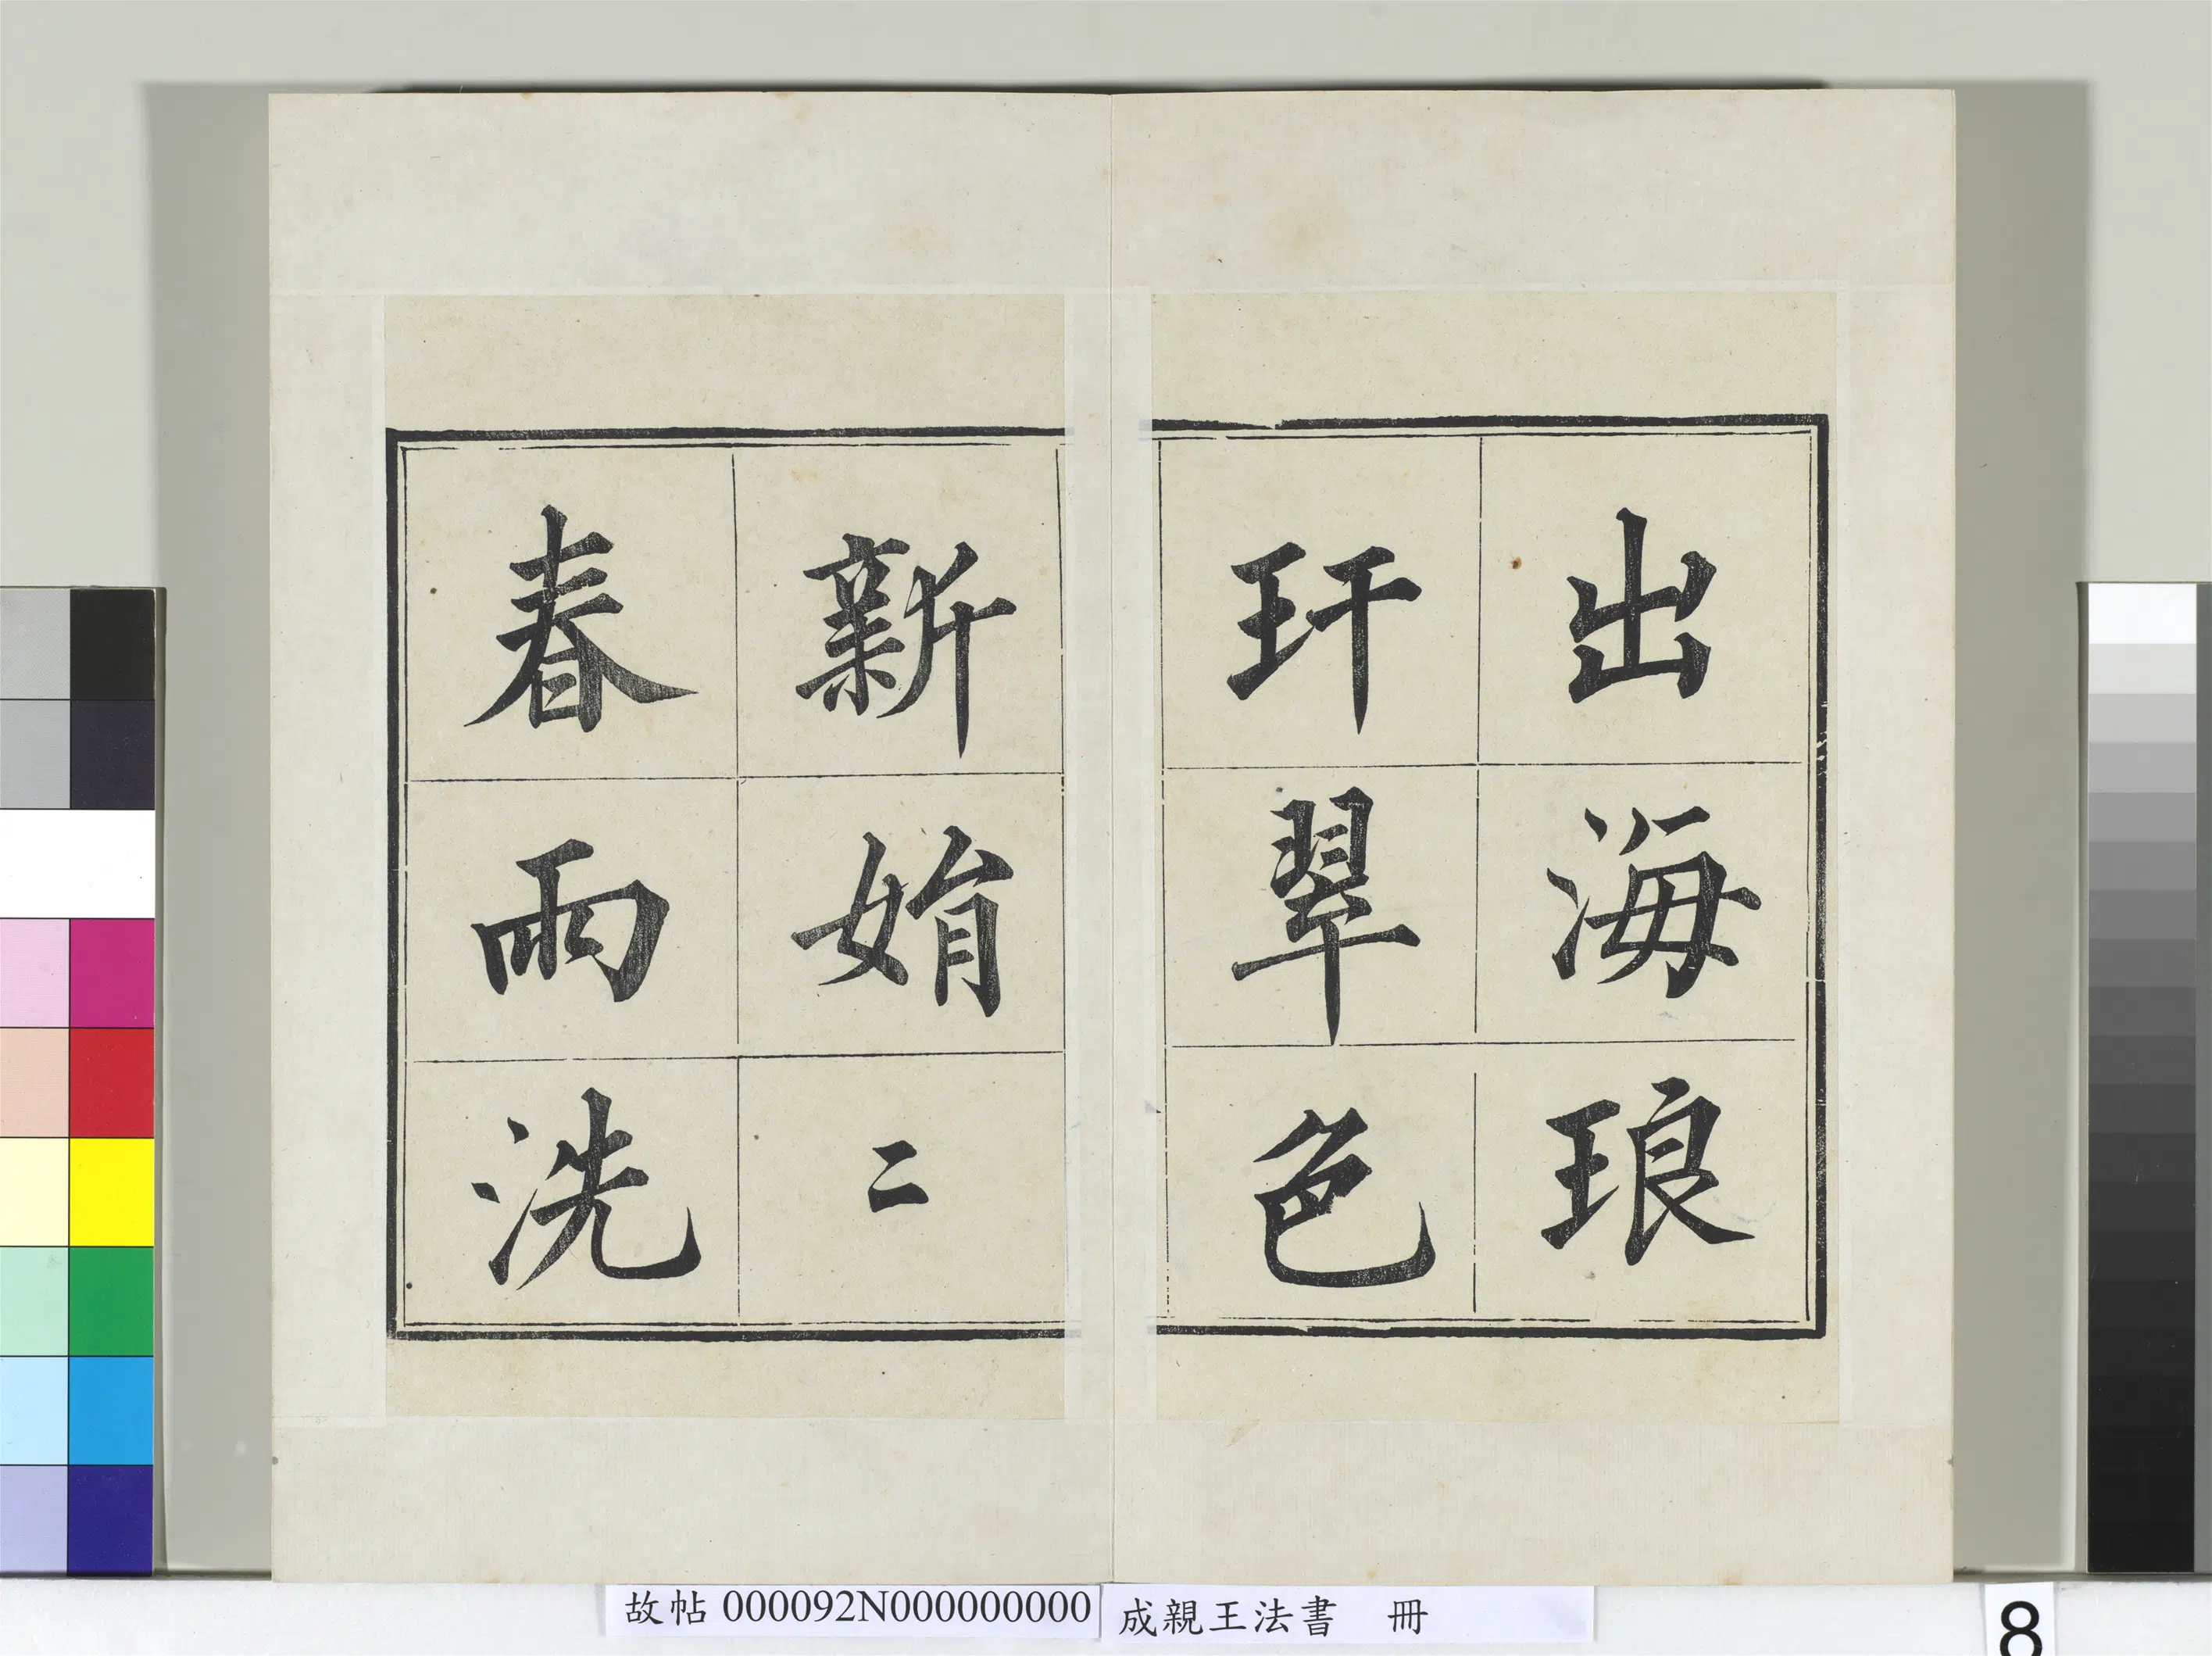 出海琅
玕翠色
新娟二
春雨洗
故帖 000092N000000000
成親王法書 冊
8